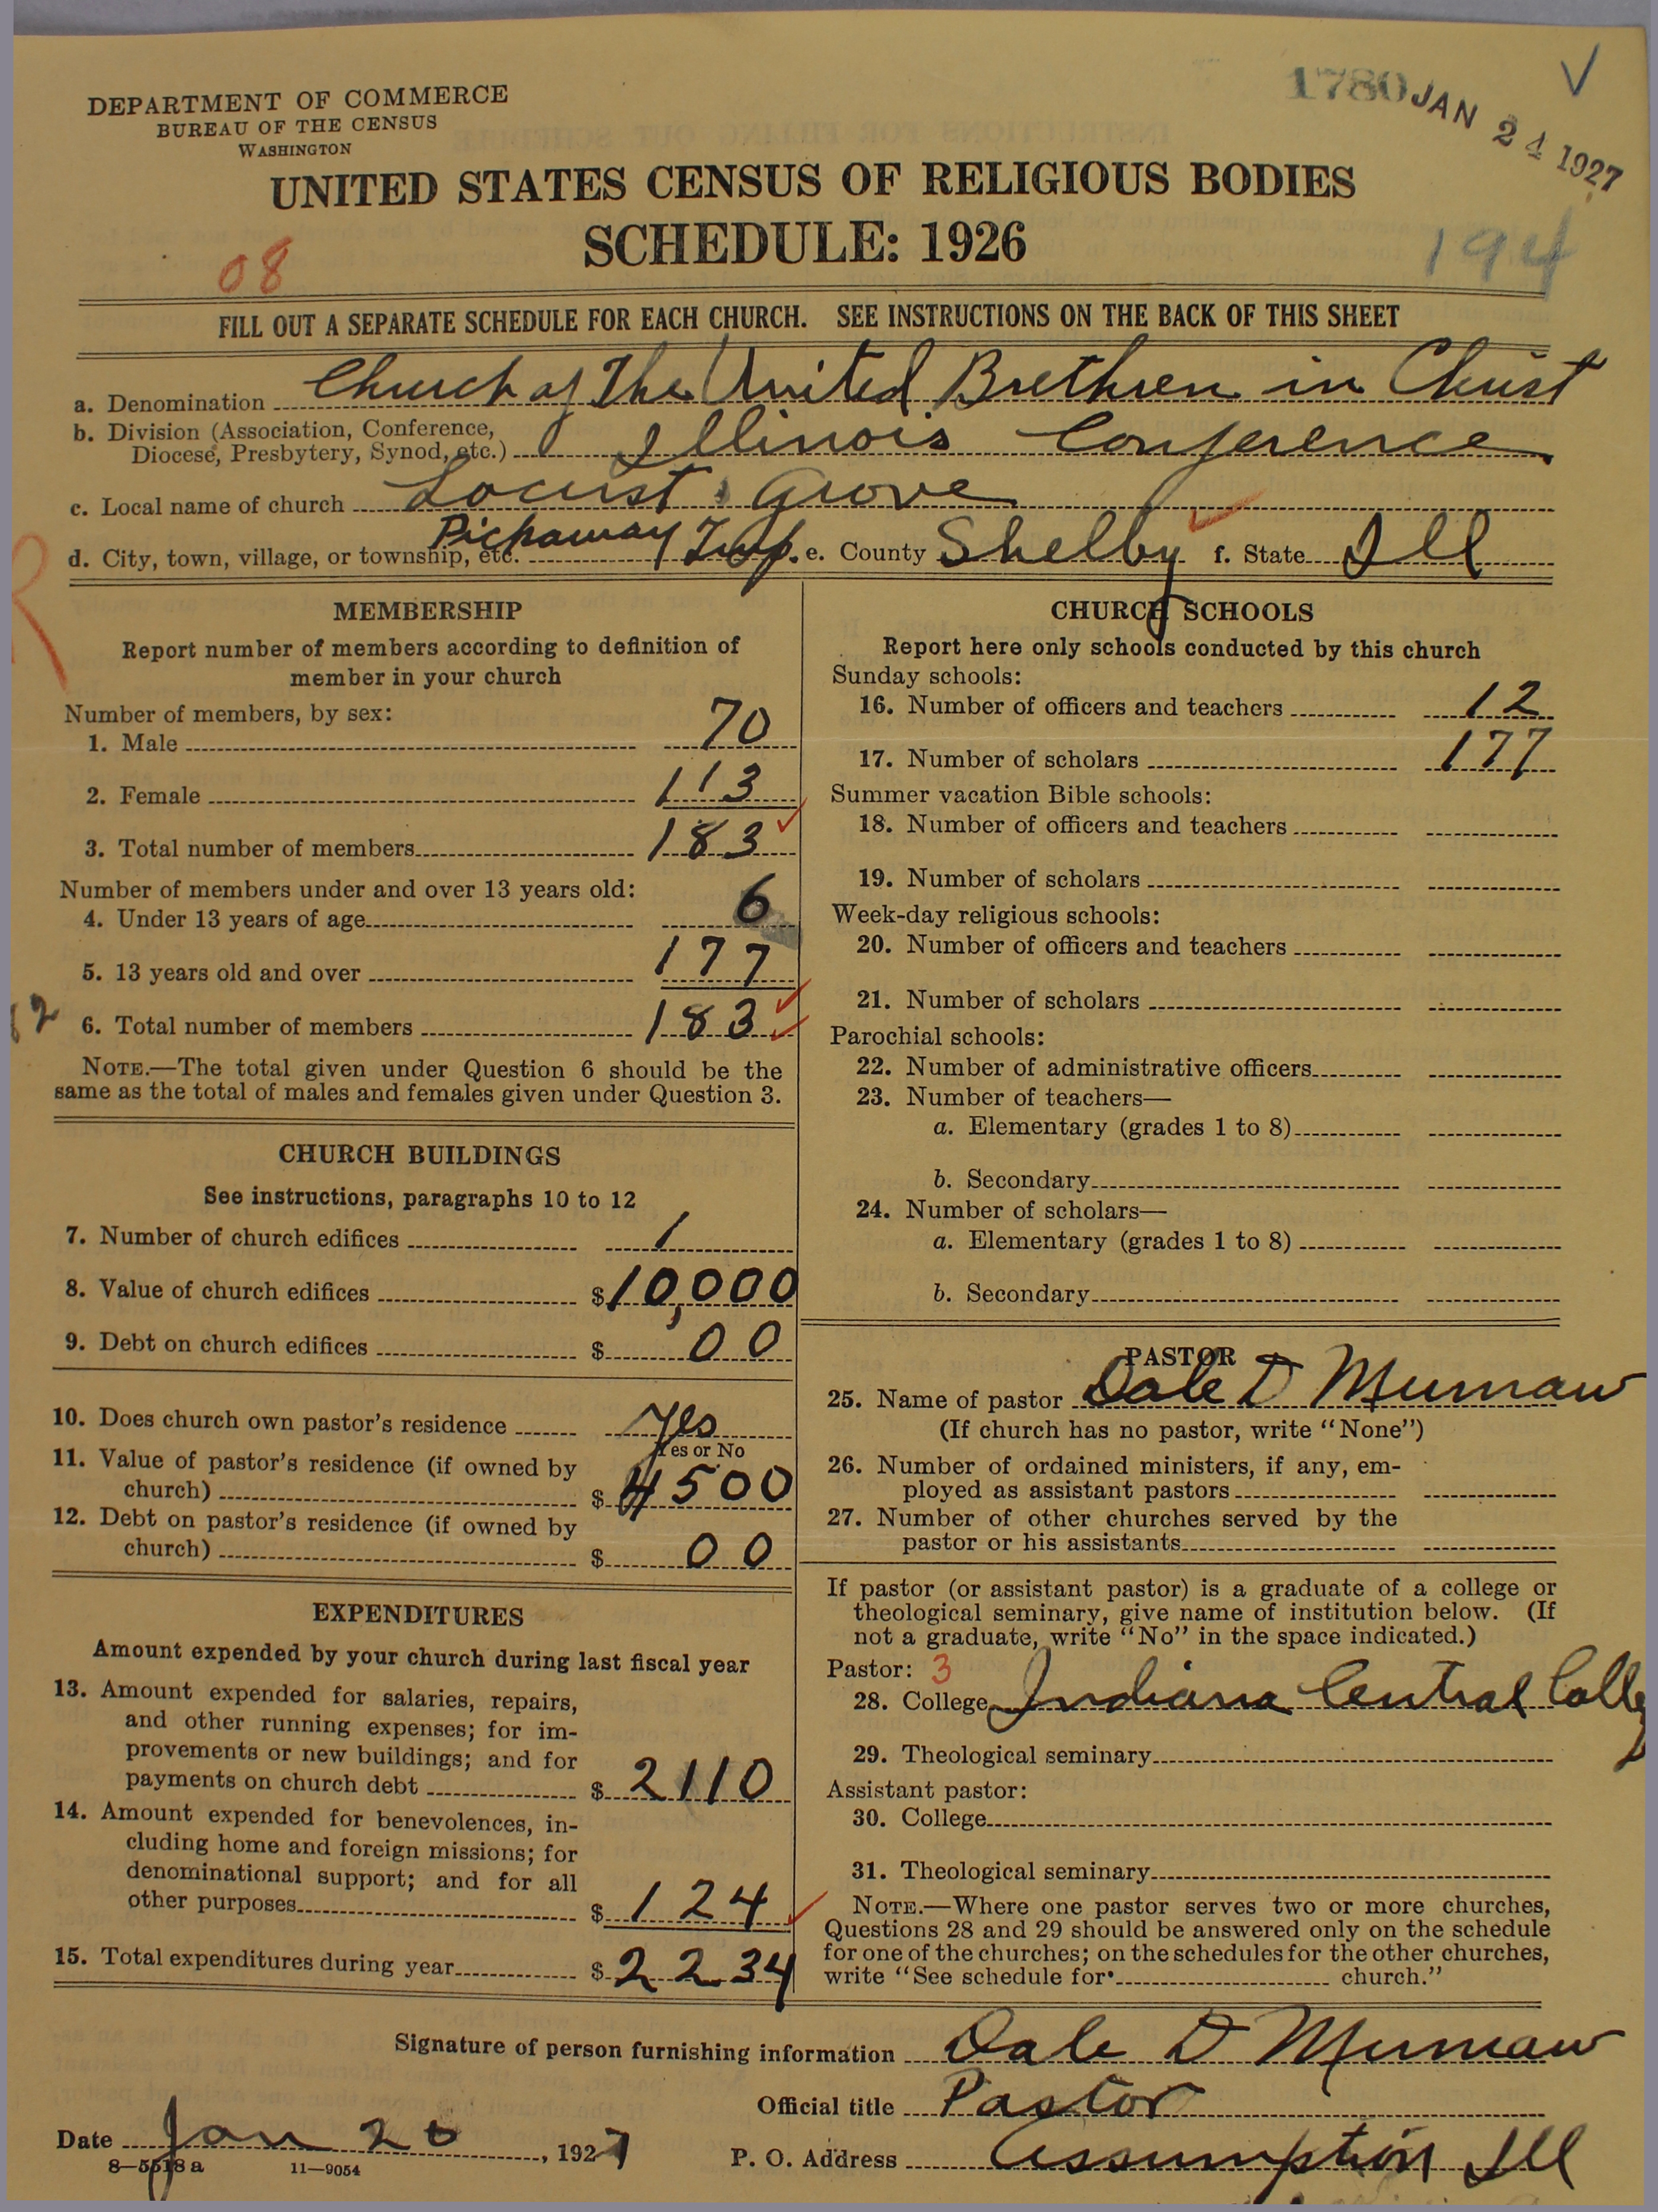 1780 JAN 24 1927
DEPARTMENT OF COMMERCE
BUREAU OF THE CENSUS
WASHINGTON
UNITED STATES CENSUS OF RELIGIOUS BODIES
SCHEDULE: 1926
08
194
FILL OUT A SEPARATE SCHEDULE FOR EACH CHURCH. SEE INSTRUCTIONS ON THE BACK OF THIS SHEET
a. Denomination Church of The United Brethren in Christ
b. Division (Association, Conference,
Diocese, Presbytery, Synod, etc.) Illinois Conference
c. Local name of church Locust Grove
d. City, town, village, or township, etc. Pickaway Twp. e. County Shelby f. State Ill
R
MEMBERSHIP
Report number of members according to definition of
member in your church
Number of members, by sex:
1. Male 70
2. Female 113
3. Total number of members 183
Number of members under and over 13 years old:
4. Under 13 years of age 6
5. 13 years old and over 177
12
6. Total number of members 183
NOTE.—The total given under Question 6 should be the
same as the total of males and females given under Question 3.
CHURCH BUILDINGS
See instructions, paragraphs 10 to 12
7. Number of church edifices 1
8. Value of church edifices $10,000
9. Debt on church edifices $ 00
10. Does church own pastor's residence Yes
Yes or No
11. Value of pastor's residence (if owned by
church) $4500
12. Debt on pastor's residence (if owned by
church) $ 00
EXPENDITURES
Amount expended by your church during last fiscal year
13. Amount expended for salaries, repairs,
and other running expenses; for im-
provements or new buildings; and for
payments on church debt $2110
14. Amount expended for benevolences, in-
cluding home and foreign missions; for
denominational support; and for all
other purposes $124
15. Total expenditures during year $2234
CHURCH SCHOOLS
Report here only schools conducted by this church
Sunday schools:
16. Number of officers and teachers 12
17. Number of scholars 177
Summer vacation Bible schools:
18. Number of officers and teachers
19. Number of scholars
Week-day religious schools:
20. Number of officers and teachers
21. Number of scholars
Parochial schools:
22. Number of administrative officers
23. Number of teachers—
a. Elementary (grades 1 to 8)
b. Secondary
24. Number of scholars—
a. Elementary (grades 1 to 8)
b. Secondary
PASTOR
25. Name of pastor Dale D Mumaw
(If church has no pastor, write "None")
26. Number of ordained ministers, if any, em-
ployed as assistant pastors
27. Number of other churches served by the
pastor or his assistants
If pastor (or assistant pastor) is a graduate of a college or
theological seminary, give name of institution below. (If
not a graduate, write "No" in the space indicated.)
Pastor: 3
28. College Indiana Central College
29. Theological seminary
Assistant pastor:
30. College
31. Theological seminary
NOTE.—Where one pastor serves two or more churches,
Questions 28 and 29 should be answered only on the schedule
for one of the churches; on the schedules for the other churches,
write "See schedule for church."
Signature of person furnishing information Dale D Mumaw
Official title Pastor
Date Jan 20, 1927
P. O. Address Assumption Ill
8—5518 a 11—9054